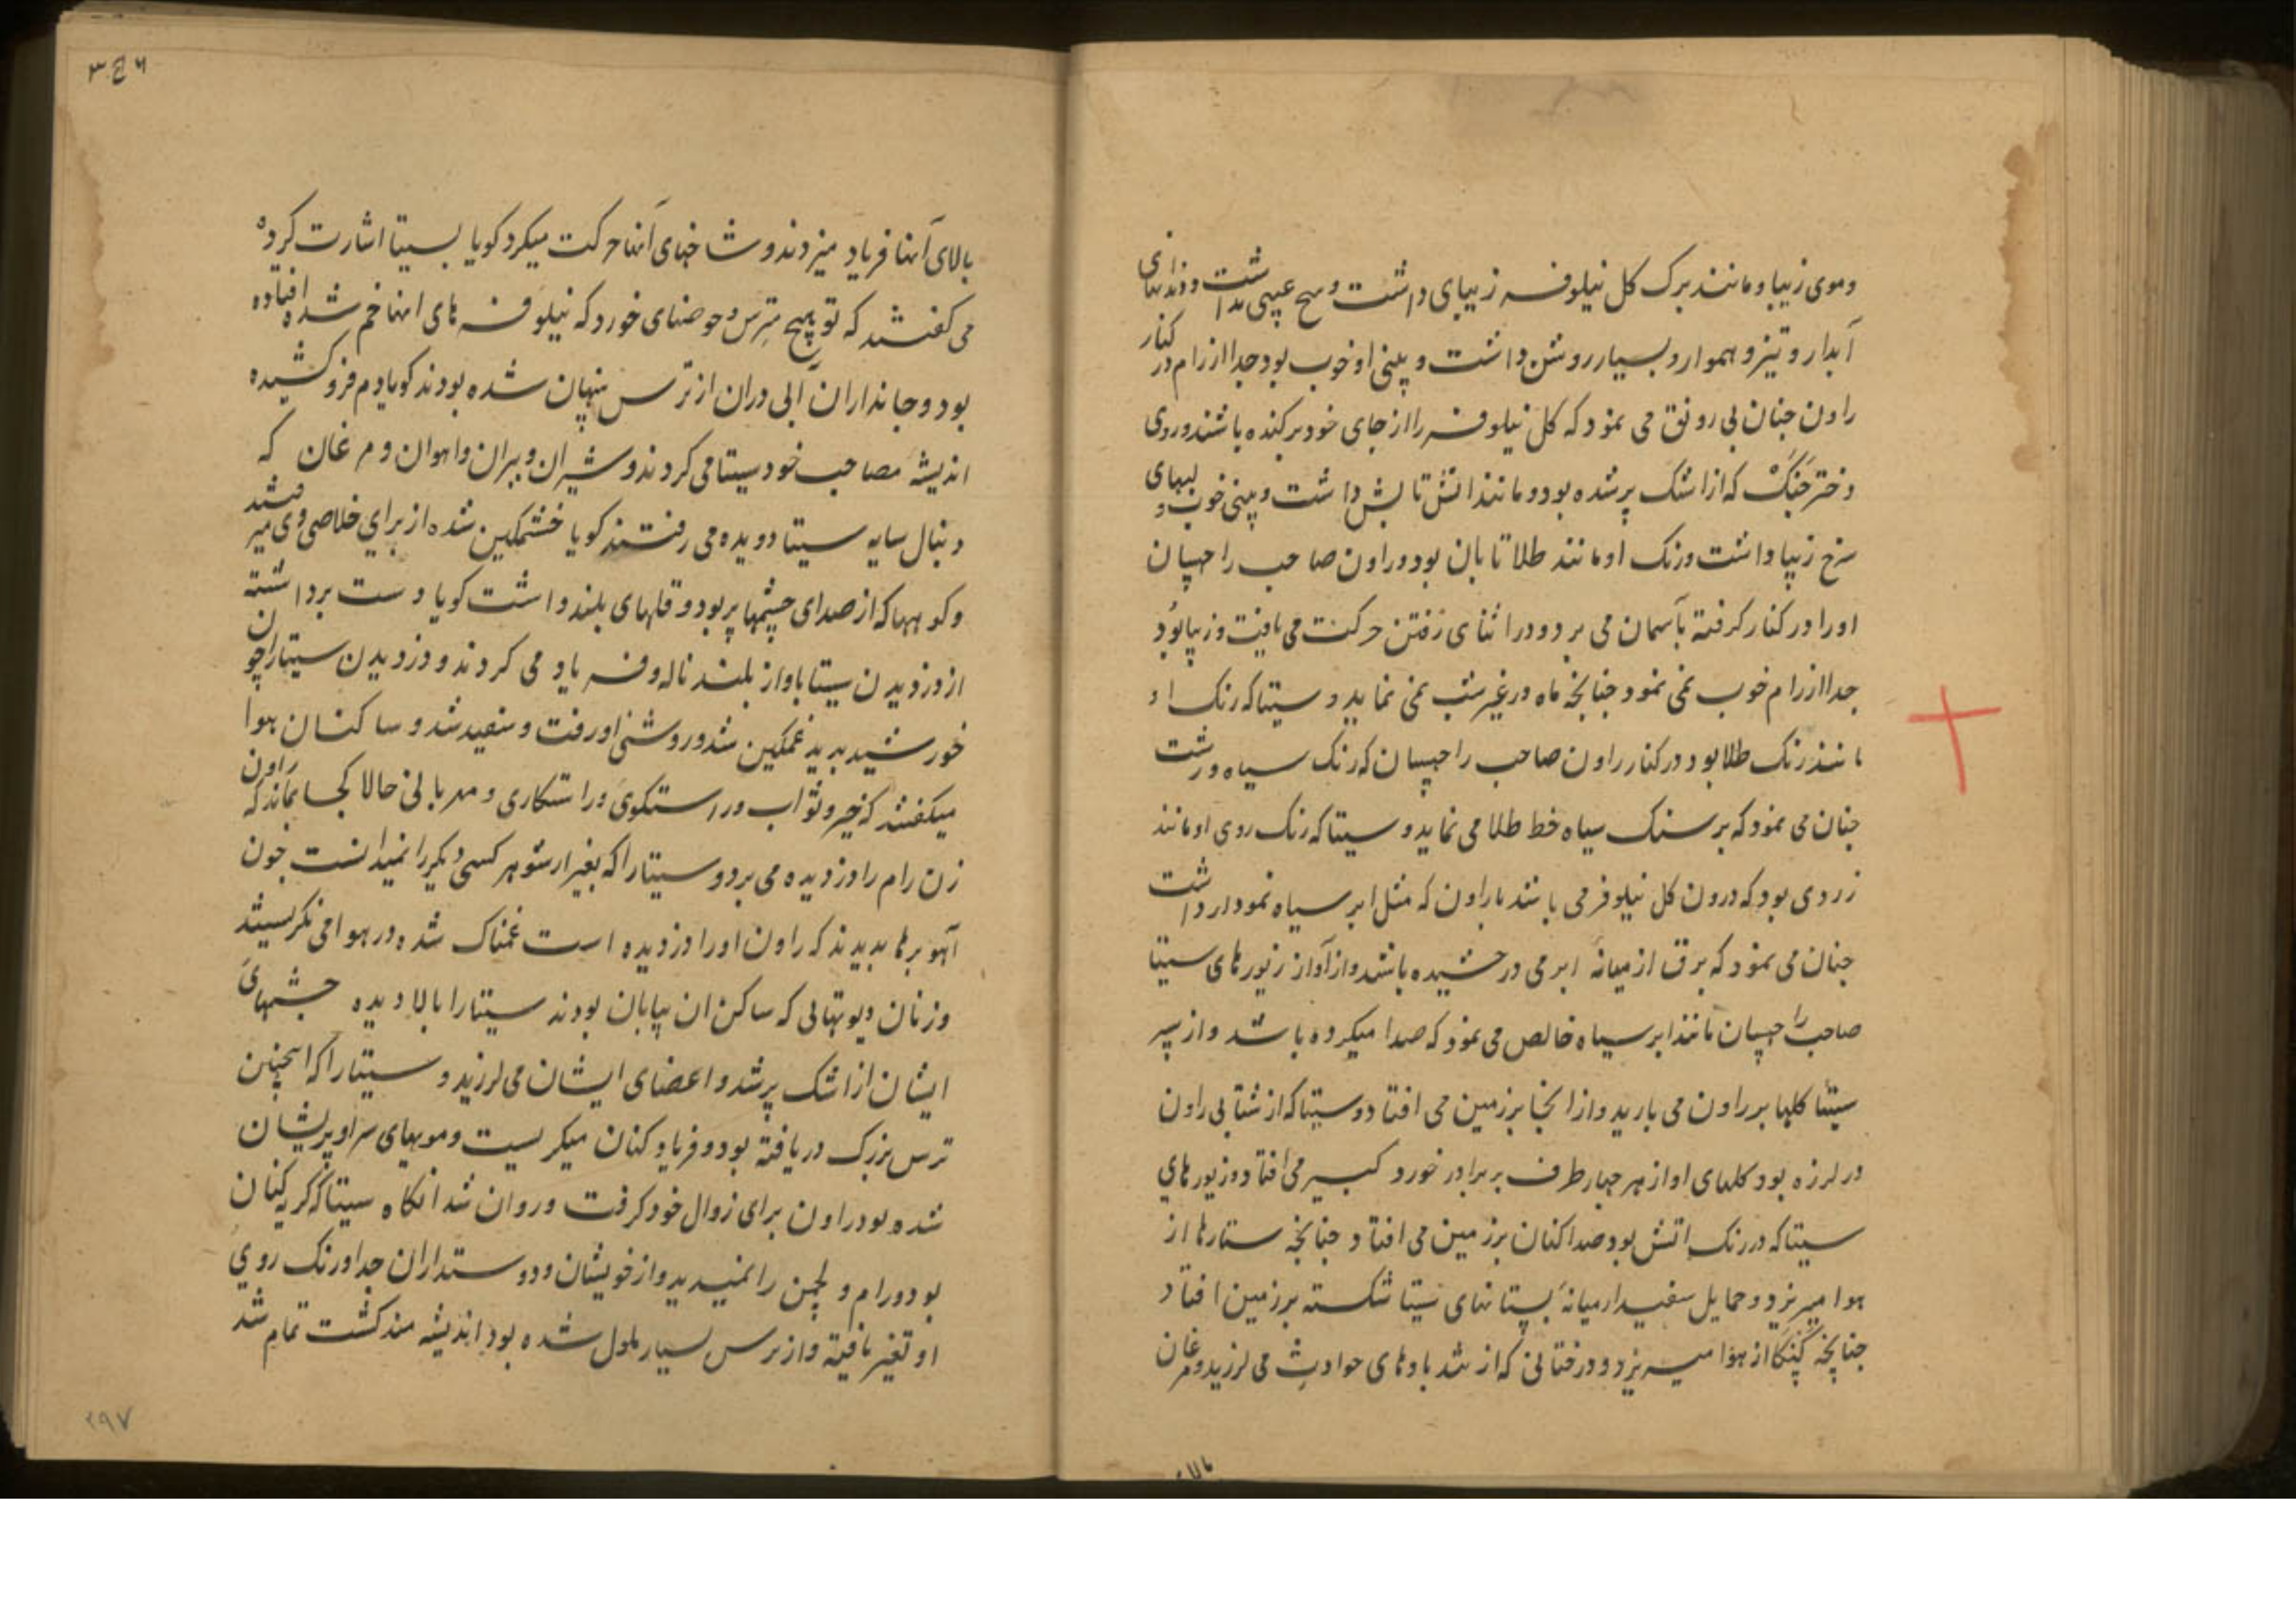 وموی زیبا ومانند برک کل نیلوفر زیبای داشت وهیچ عیبی نداشت ودندانهای
آبدار و تیز و هموار و بسیار روشن داشت و بینی او خوب بود جدا از رام در کنار
راون چنان بی رونق می نمود که کل نیلوفر را از جای خود برکنده باشند وروی
دختر جنک که از اشک پر شده بود ومانند اتش تابش داشت وبینی خوب و لبهای
سرخ زیبا داشت ورنک او مانند طلا تابان بود وراون صاحب راچهسان
اورا در کنار کرفته بآسمان می برد ودر اثنای رفتن حرکت می یافت وزیبا بود
جدا از رام خوب نمی نمود چنانچه ماه در غیر شب نمی نماید و سیتا که رنک او
مانند رنک طلا بود در کنار راون صاحب راچهسان که رنک سیاه ورشت
چنان می نمود که بر سنک سیاه خط طلا می نماید و سیتا که رنک روی او مانند
زردی بود که درون کل نیلوفر می باشد با راون که مثل ابر سیاه نمودار داشت
چنان می نمود که برق از میانه ابر می درخشیده باشد واز آواز زیورهای سیتا
صاحب راچهسان مانند ابر سیاه خالص می نمود که صدا میکرده باشد واز سر
سیتا کلها بر راون می بارید واز انجا بر زمین می افتاد وسیتا که از شتابی راون
در لرزه بود کلهای او از هر چهار طرف بر برادر خورد کبیر می افتاد وزیورهای
سیتا که در رنک اتش بود صدا کنان بر زمین می افتاد چنانچه ستارها از
هوا میریزد وحمایل سفید از میانه پستانهای سیتا شکسته بر زمین افتاد
چنانچه کنکا از هوا میریزد ودرختانی که از تند بادهای حوادث می لرزید ومرغان
بالای
۳۴۶
بالای آنها فریاد میزدند وشاخهای آنها حرکت میکرد کویا بسیتا اشارت کرده
می کفتند که تو هیچ مترس وحوضهای خورد که نیلوفرهای انها خم شده افتاده
بود وجانداران آبی دران از ترس پنهان شده بودند کویا دم فرو کشیده
اندیشه مصاحب خود سیتا می کردند وشیران وببران واهوان ومرغان که
دنبال سایه سیتا دویده می رفتند کویا خشمکین شده از برای خلاصی وی میرفتند
وکوهها که از صدای چشمها پر بود وقلهای بلند داشت کویا دست برداشته
از دزدیدن سیتا باواز بلند ناله وفریاد می کردند ودزدیدن سیتا را چون
خورشید بدید غمکین شد وروشنی او رفت وسفید شد وساکنان هوا
میکفتند که خیر وثواب وراستکوی وراستکاری ومهربانی حالا کجا بماند که راون
زن رام را دزدیده می برد وسیتا را که بغیر از شوهر کسی دیکر را نمیدانست چون
آهو برها بدیدند که راون اورا دزدیده است غمناک شده در هوا می نکریستند
وزنان دیوتهائی که ساکن ان بیابان بودند سیتا را بالا دیده چشمهای
ایشان از اشک پر شد واعضای ایشان می لرزید و سیتا را که اینچنین
ترس بزرک دریافته بود وفریاد کنان میکریست وموبهای سر او پریشان
شده بود راون برای زوال خود کرفت وروان شد انکاه سیتا که کریه کنان
بود ورام و لچمن را نمیدید واز خویشان ودوستداران جدا ورنک روی
او تغیر یافته واز ترس بسیار ملول شده بود اندیشه مند کشت تمام شد
۲۹۷